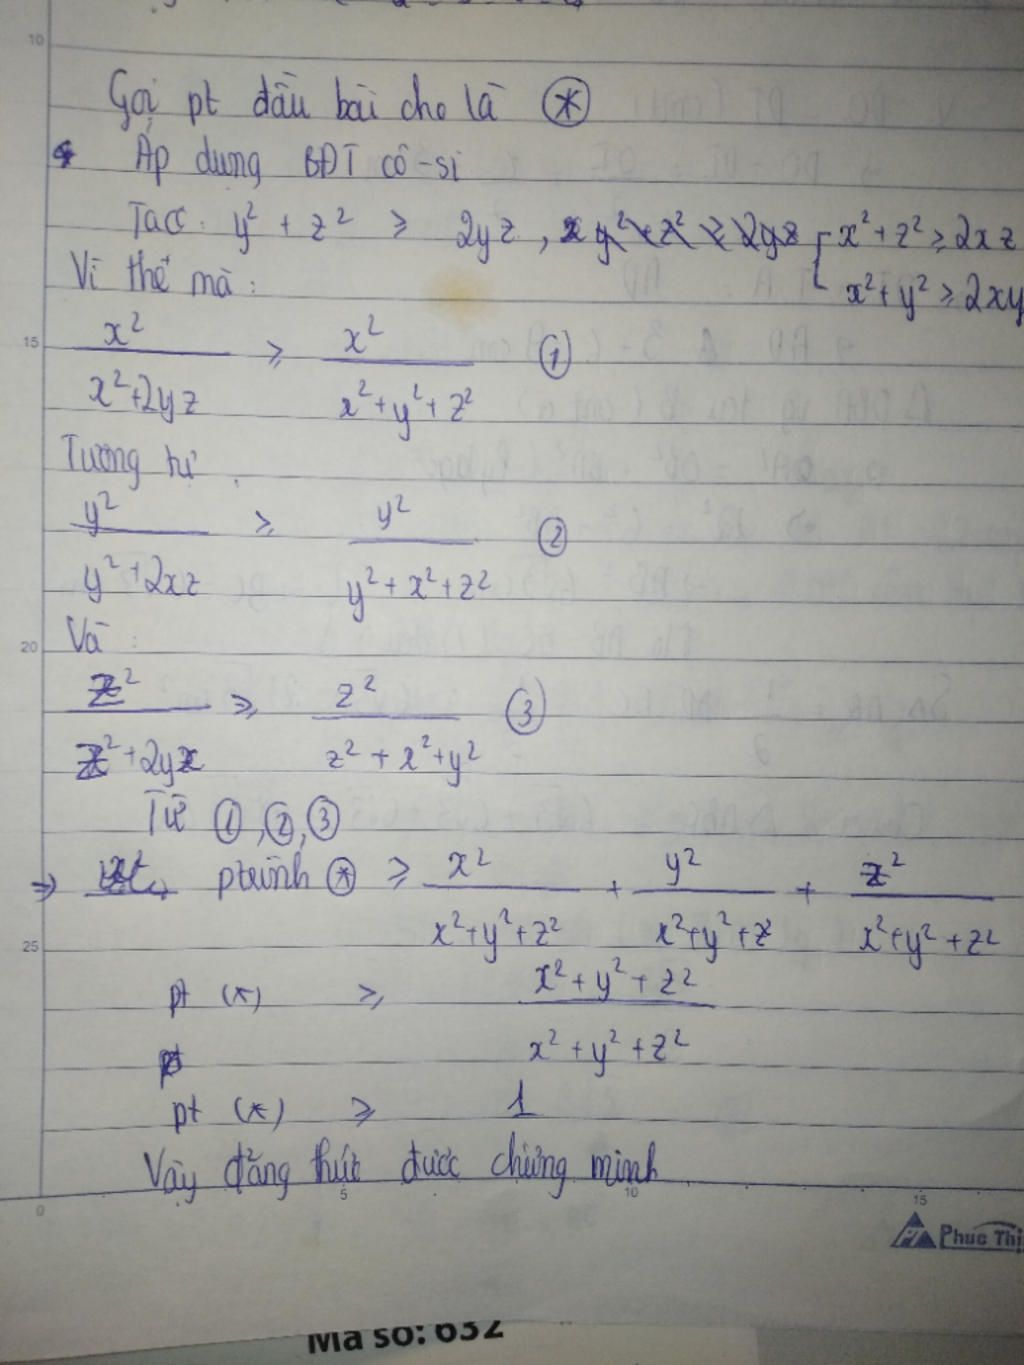 10
Gọi pt đầu bài cho là (*)
Áp dụng BĐT cô-si
Tacc: y² + z² ≥ 2yz, x² + z² ≥ 2xz
x² + y² ≥ 2xy
Vì thế mà:
15
x²/(x²+2yz) ≥ x²/(x²+y²+z²) ①
Tương tự
y²/(y²+2xz) ≥ y²/(y²+x²+z²) ②
20
Và:
z²/(z²+2yx) ≥ z²/(z²+x²+y²) ③
Từ ①,②,③
⇒ ptrình (*) ≥ x²/(x²+y²+z²) + y²/(x²+y²+z²) + z²/(x²+y²+z²)
25
pt (*) ≥ (x²+y²+z²)/(x²+y²+z²)
pt (*) ≥ 1
Vậy đẳng thức được chứng minh
0 5 10 15
Phuc Thi
Mã số: 632